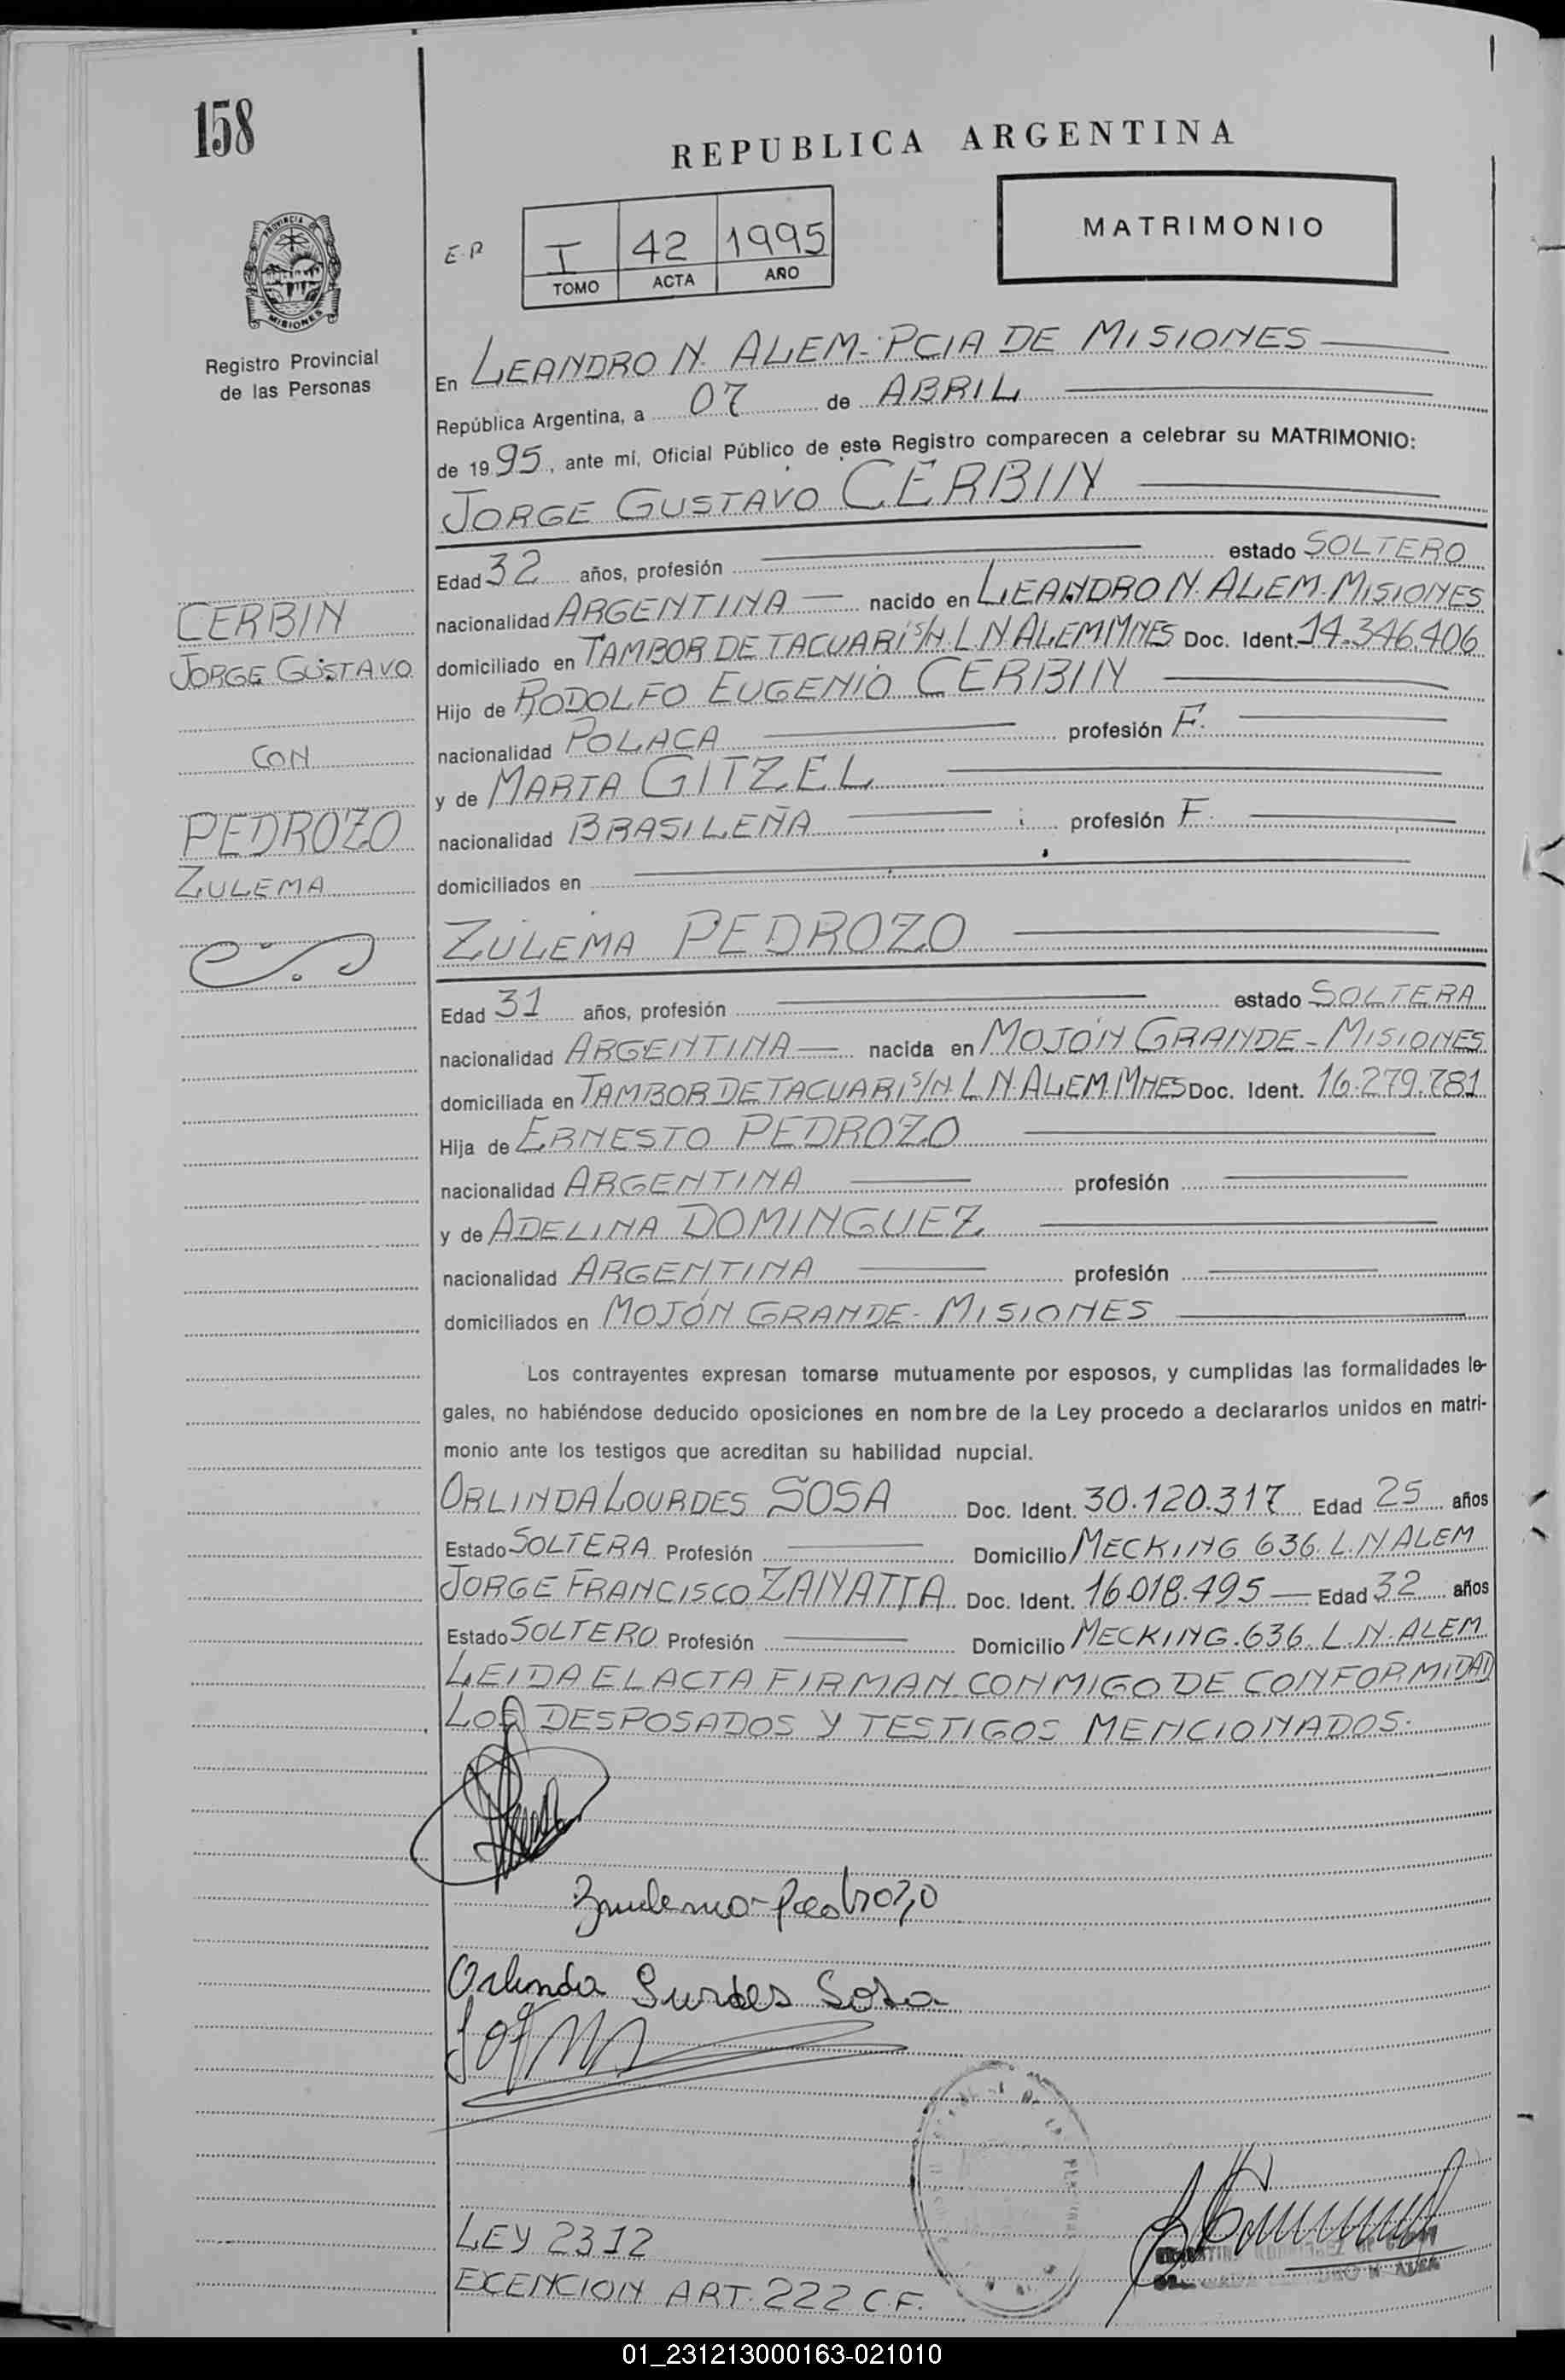 158
REPUBLICA ARGENTINA
PROVINCIA DE
MISIONES
Registro Provincial
de las Personas
E.R
I 42 1995
TOMO ACTA AÑO
MATRIMONIO
En LEANDRO N. ALEM - PCIA DE MISIONES
República Argentina, a 07 de ABRIL
de 1995, ante mí, Oficial Público de este Registro comparecen a celebrar su MATRIMONIO:
JORGE GUSTAVO CERBIN
Edad 32 años, profesión estado SOLTERO
nacionalidad ARGENTINA nacido en LEANDRO N. ALEM. MISIONES
domiciliado en TAMBOR DE TACUARI S/N. L.N.ALEM MNES Doc. Ident. 14.346.406
Hijo de RODOLFO EUGENIO CERBIN
nacionalidad POLACA profesión F.
y de MARTA GITZEL
nacionalidad BRASILEÑA profesión F.
domiciliados en
CERBIN
JORGE GUSTAVO
CON
PEDROZO
ZULEMA
ZULEMA PEDROZO
Edad 31 años, profesión estado SOLTERA
nacionalidad ARGENTINA nacida en MOJÓN GRANDE - MISIONES
domiciliada en TAMBOR DE TACUARI S/N. L N. ALEM. MNES Doc. Ident. 16.279.781
Hija de ERNESTO PEDROZO
nacionalidad ARGENTINA profesión
y de ADELINA DOMINGUEZ
nacionalidad ARGENTINA profesión
domiciliados en MOJÓN GRANDE - MISIONES
Los contrayentes expresan tomarse mutuamente por esposos, y cumplidas las formalidades le-
gales, no habiéndose deducido oposiciones en nombre de la Ley procedo a declararlos unidos en matri-
monio ante los testigos que acreditan su habilidad nupcial.
ORLINDA LOURDES SOSA Doc. Ident. 30.120.317 Edad 25 años
Estado SOLTERA Profesión Domicilio MECKING 636. L.N ALEM
JORGE FRANCISCO ZANATTA Doc. Ident. 16.018.495 Edad 32 años
Estado SOLTERO Profesión Domicilio MECKING.636. L.N.ALEM
LEIDA EL ACTA FIRMAN CONMIGO DE CONFORMIDAD
LOS DESPOSADOS Y TESTIGOS MENCIONADOS.
Zulema Pedrozo
Orlinda Lurdes Sosa
LEY 2312
EXENCION ART. 222 C.F.
01_231213000163-021010